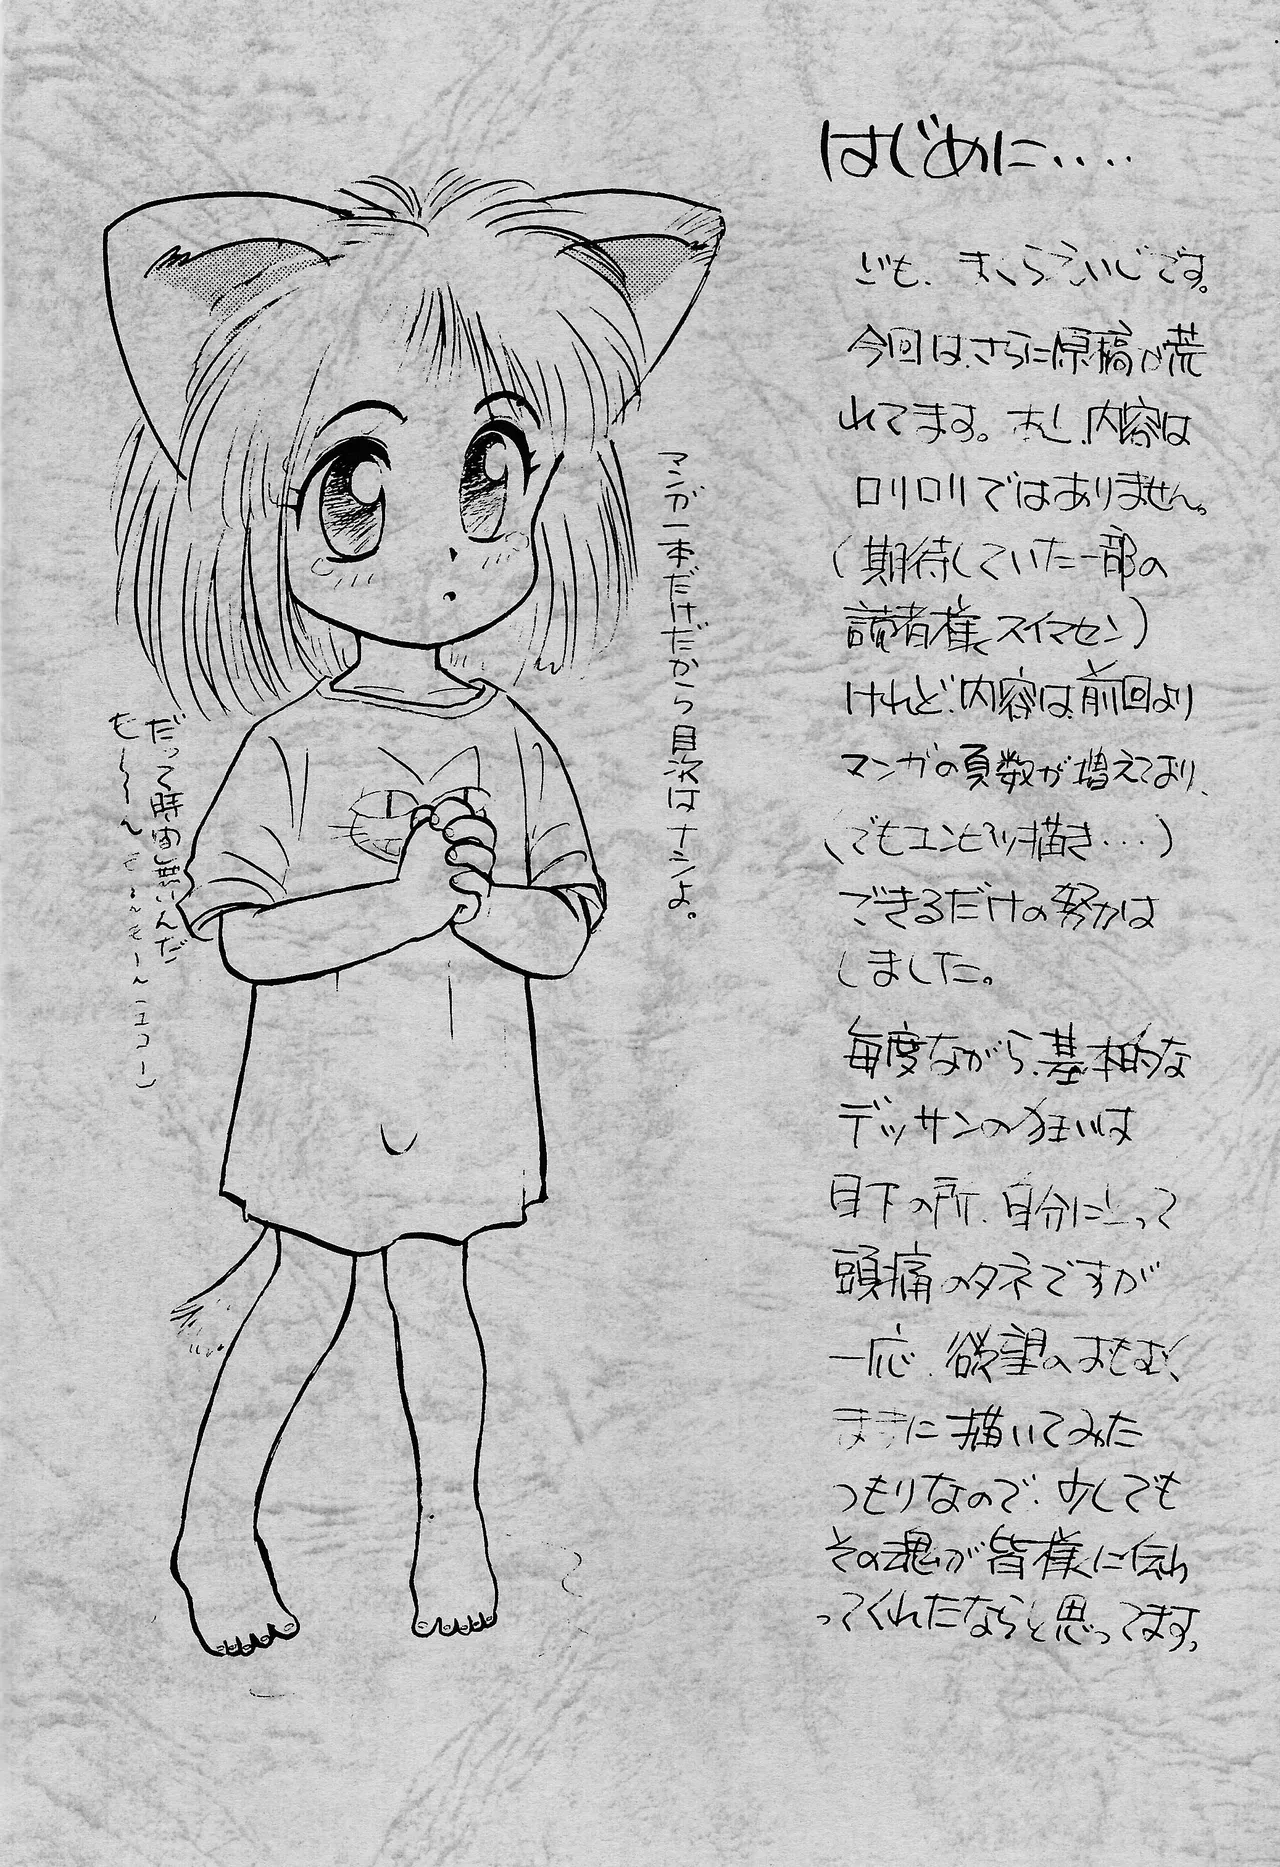 はじめに‥‥
ども、まくらえいじです。
今回は、さらに原稿が荒
れてます。おし、内容は
ロリロリではありません。
(期待していた一部の
読者様、スイマセン)
けれど、内容は、前回より
マンガの頁数が増えており、
(でもエンピツ描き‥‥)
できるだけの努力は
しました。
毎度ながら、基本的な
デッサンの狂いは
目下の所、自分にとって
頭痛のタネですが
一応、欲望のおもむく
ままに描いてみた
つもりなので、少しでも
その魂が皆様に伝わ
ってくれたならと思ってます。
マンガ一本だけだから目次はナシよ。
だって時間無いんだ
も〜〜〜ん も〜ん も〜ん(エコー)